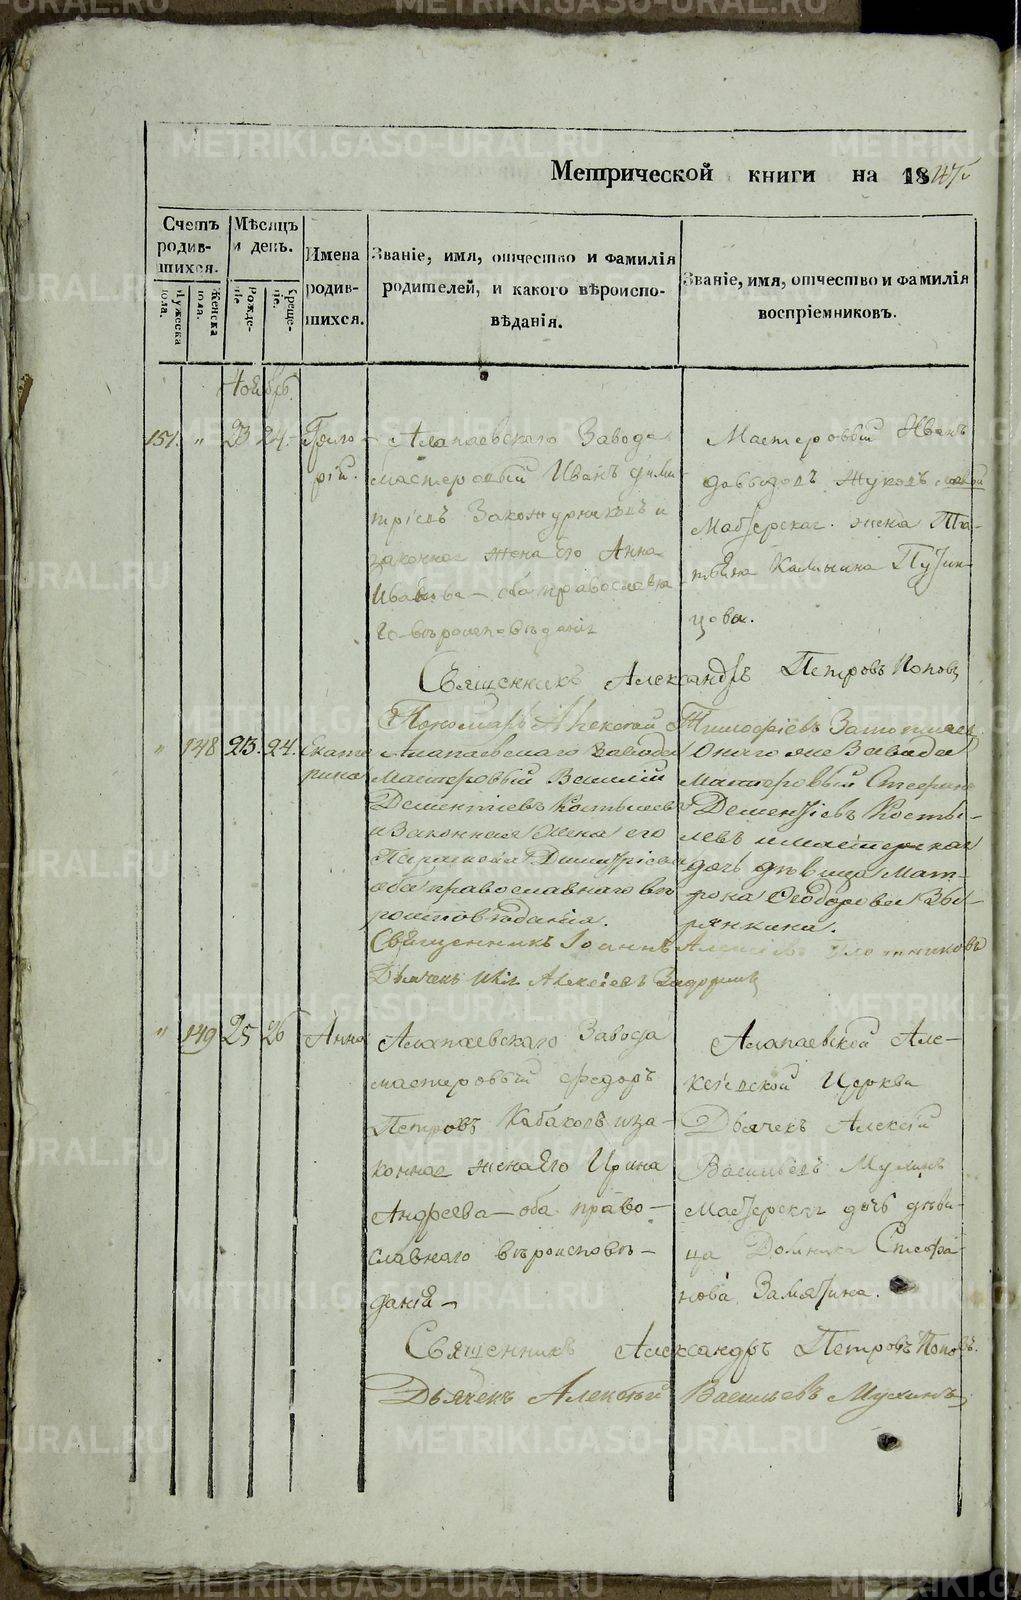 Метрической книги на 1847
Счетъ родившихся.
Мужеска пола.
Женска пола.
Мѣсяцъ и день.
Рожденіе.
Крещеніе.
Имена родившихся.
Званіе, имя, отчество и фамилія родителей, и какого вѣроисповѣданія.
Званіе, имя, отчество и фамилія воспріемниковъ.
Ноябрь.
151. " 23 24. Григорій.
Алапаевскаго Завода
мастеровый Иванъ Дими
тріевъ и
законная жена Его Анна
Иванова – оба православна
го вѣроисповѣданія
Мастеровый Иванъ
Давыдовъ Жуковъ
Мастерская жена Та-
тьяна Калинина
цова.
Священникъ Александръ Петровъ Поповъ
Пономарь Алексѣй Тимофеевъ
" 148 23. 24. Екатерина
Алапаевскаго Завода
Мастеровый Василій
Дементіевъ Костылевъ
и Законная Жена его
Параскова Димитріева
оба православнаго вѣ
роисповѣданія.
Онаго же Завода
Мастеровый Стефанъ
Дементіевъ Косты-
левъ и мастерская
дочь дѣвица Мат-
рона Феодорова Зы-
рянкина.
Священникъ Іоаннъ Алексіевъ Плотниковъ
Дьячекъ Алексіевъ
" 149 25 26 Анна
Алапаевскаго Завода
мастеровый Федоръ
Петровъ Кабаковъ и за-
конная жена Его Ирина
Андреева – оба право-
славнаго вѣроисповѣ-
данія –
Алапаевской Але-
ксіевской Церкви
Дьячекъ Алексій
Васильевъ Мухинъ
Мастерская дочь дѣви-
ца Домника Стефа-
нова Замятина.
Священникъ Александръ Петровъ Поповъ.
Дьячекъ Алексѣй Васильевъ Мухинъ
METRIKI.GASO-URAL.RU